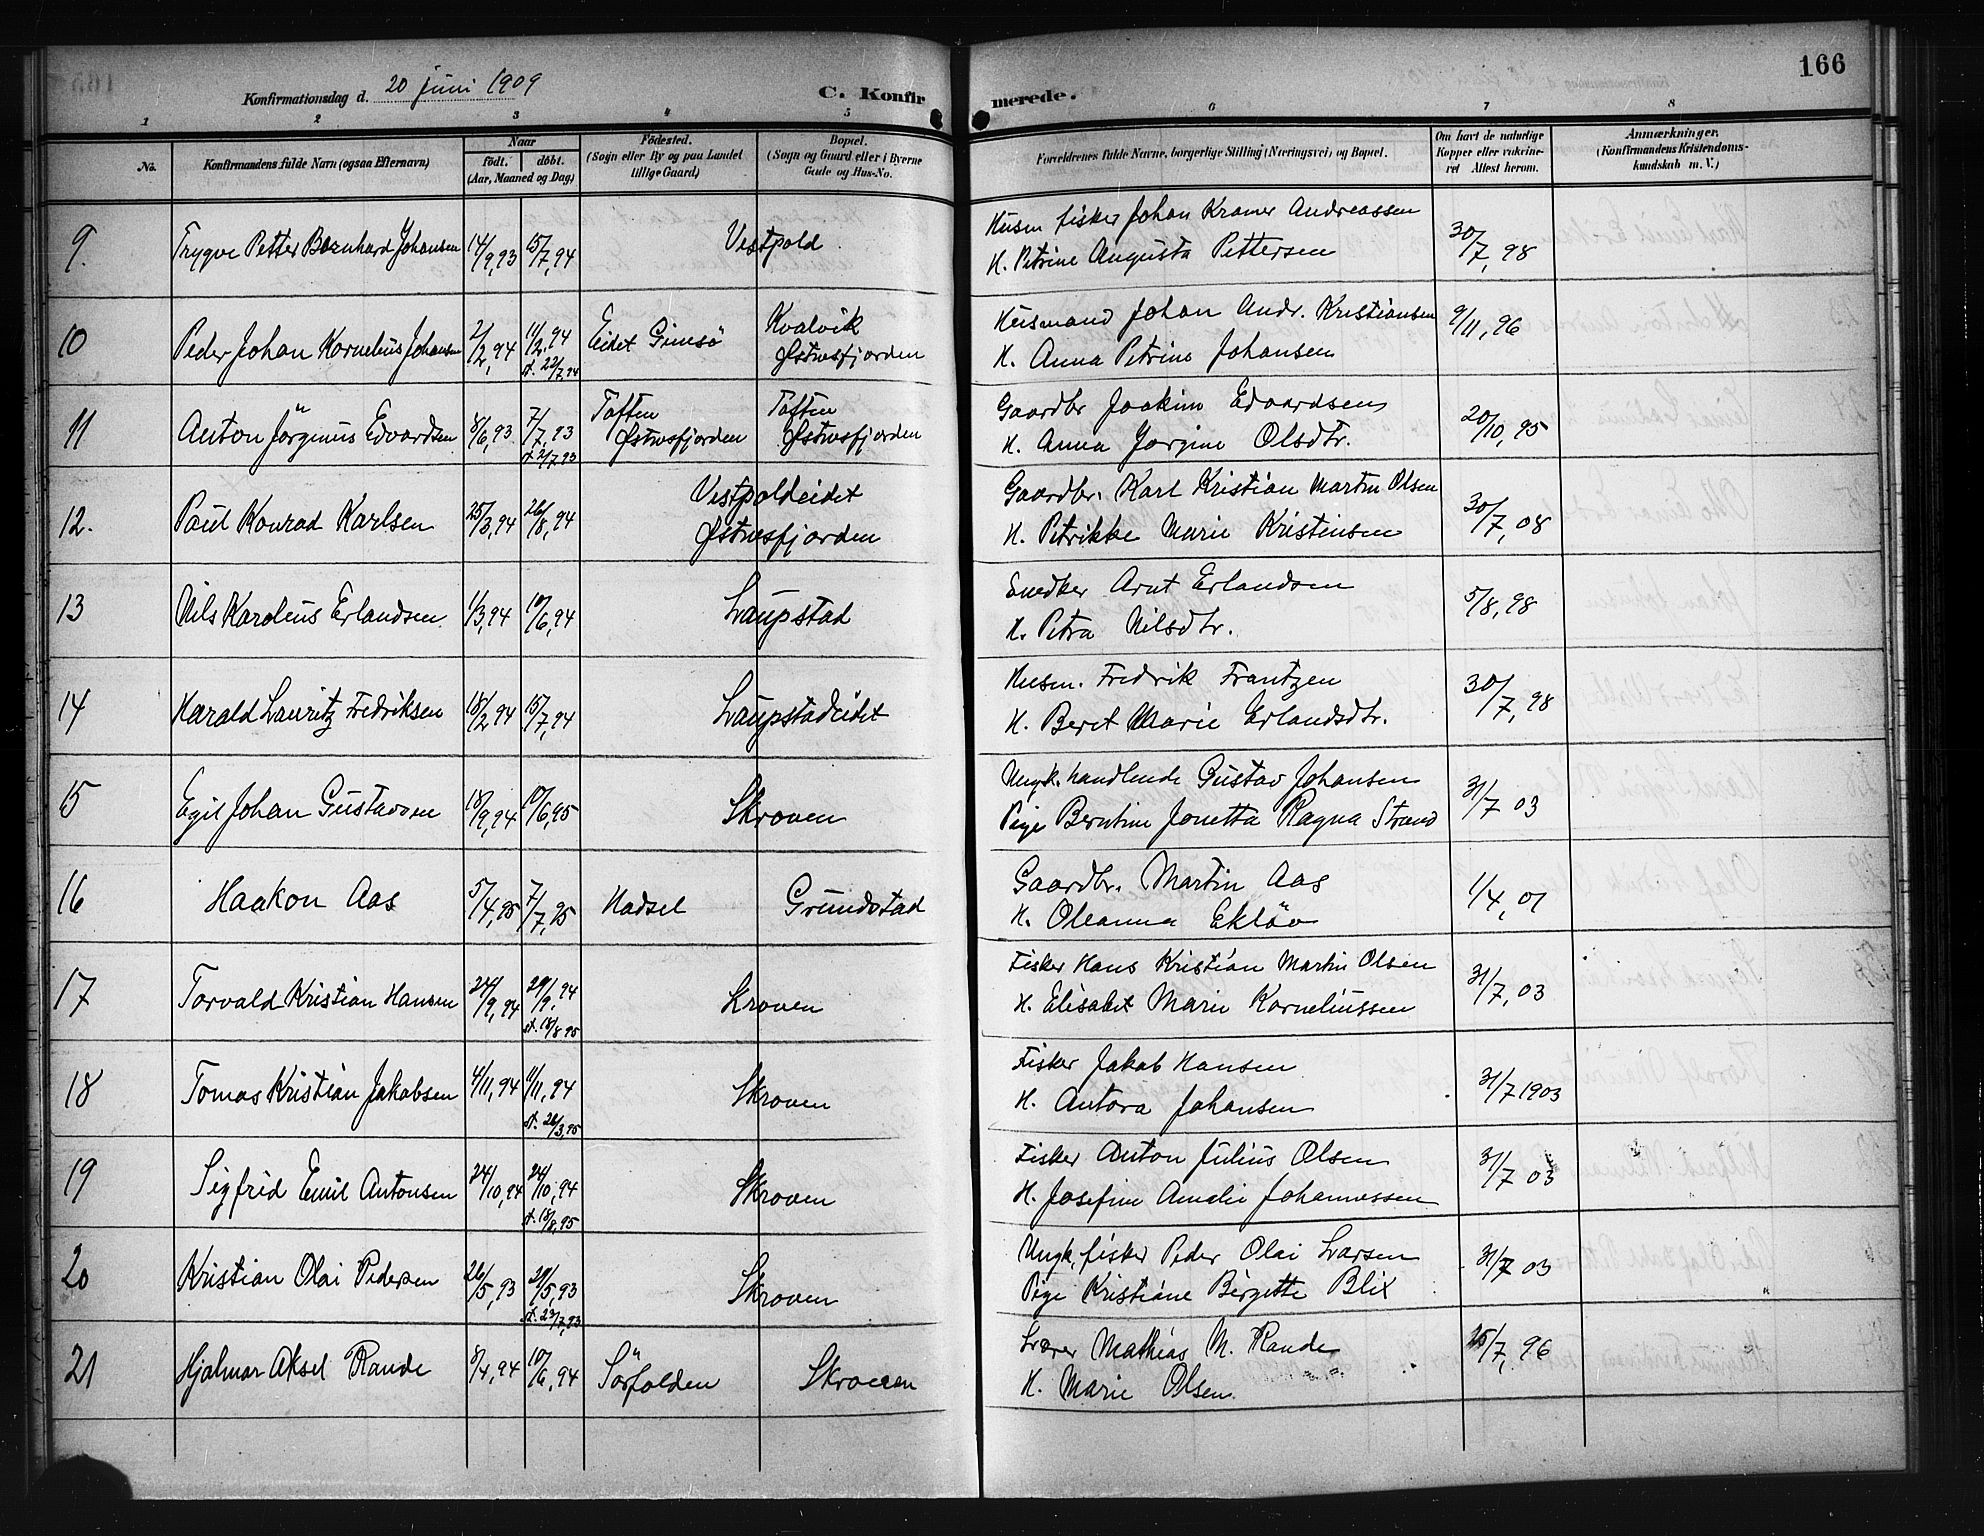 166
Konfirmationsdag d. 20 juni 1909
C. Konfirmerede.
1 2 3 4 5 6 7 8
No.
Konfirmandens fulde Navn (ogsaa Efternavn)
Naar
født. døbt.
(Aar, Maaned og Dag)
Fødested.
(Sogn eller By og paa Landet
tillige Gaard)
Bopæl.
(Sogn og Gaard eller i Byerne
Gade og Hus-No.
Forældrenes fulde Navne, borgerlige Stilling (Næringsvei) og Bopæl.
Om havt de naturlige
Kopper eller vakcine-
ret Attest herom.
Anmærkninger.
(Konfirmandens Kristendoms-
kundskab m. V.)
9. Trygve Petter Bernhard Johansen 14/9,93 15/7,94 Vestpold Husm fisker Johan Kramer Andreassen 30/7,98
H. Petrine Augusta Pettersen
10 Peder Johan Kornelius Johansen 2/2,94 11/2,94 Eidet Gimsö Kvalvik Husmand Johan Andr. Kristiansen 9/11,96
st. 22/7,94 Østnesfjorden H. Anna Petrine Johansen
11 Anton Jörginus Edvardsen 8/6,93 7/7,93 Toften Toften Gaardbr Joakim Edvardsen 20/10,95
st. 2/7,93 Østnesfjorden Østnesfjorden H. Anna Jørgine Olsdtr.
12. Paul Konrad Karlsen 25/3,94 26/8,94 Vestpoldeidet Gaardbr. Karl Kristian Martin Olsen 30/7,08
Østnesfjorden H. Petrikke Marie Kristensen
13 Nils Karolius Erlandsen 1/3,94 10/6,94 Laupstad Snedker Arnt Erlandsen 5/8,98
H. Petra Nilsdtr.
14 Harald Lauritz Fredriksen 18/2,94 15/7,94 Laupstadeidet Husm. Fredrik Frantzen 30/7,98
H. Beret Marie Erlandsdtr.
15 Egil Johan Gustavsen 18/9,94 10/6,95 Skroven Ungk. handlende Gustav Johansen 31/7 03
Pige Berntine Jonetta Ragna Strand
16 Haakon Aas 5/4,95 7/7,95 Hadsel Grundstad Gaardbr. Martin Aas 1/4,01
H. Oleanna Eklöv
17 Torvald Kristian Hansen 24/9,94 29/9,94 Skroven Fisker Hans Kristian Martin Olsen 31/7,03
st. 18/8 95 H. Elisabet Marie Korneliussen
18 Tomas Kristian Jakobsen 4/11,94 11/11,94 Skroven Fisker Jakob Hansen 31/7 1903
st. 26/3,95 H. Antora Johansen
19 Sigfrid Emil Antonsen 24/10,94 24/10,94 Skroven Fisker Anton Julius Olsen 31/7 03
st. 18/8,95 H. Josefine Amalie Johannessen
20 Kristian Olai Pedersen 26/5,93 29/5,93 Skroven Ungk. fisker Peder Olai Larsen 31/7 03
st. 23/7,93 Pige Kristiane Birgitte Blix
21 Hjalmar Aksel Rande 8/4,94 10/6,94 Sörfolden Skroven Lærer Mathias M. Rande 25/7,96
H. Marie Olsen